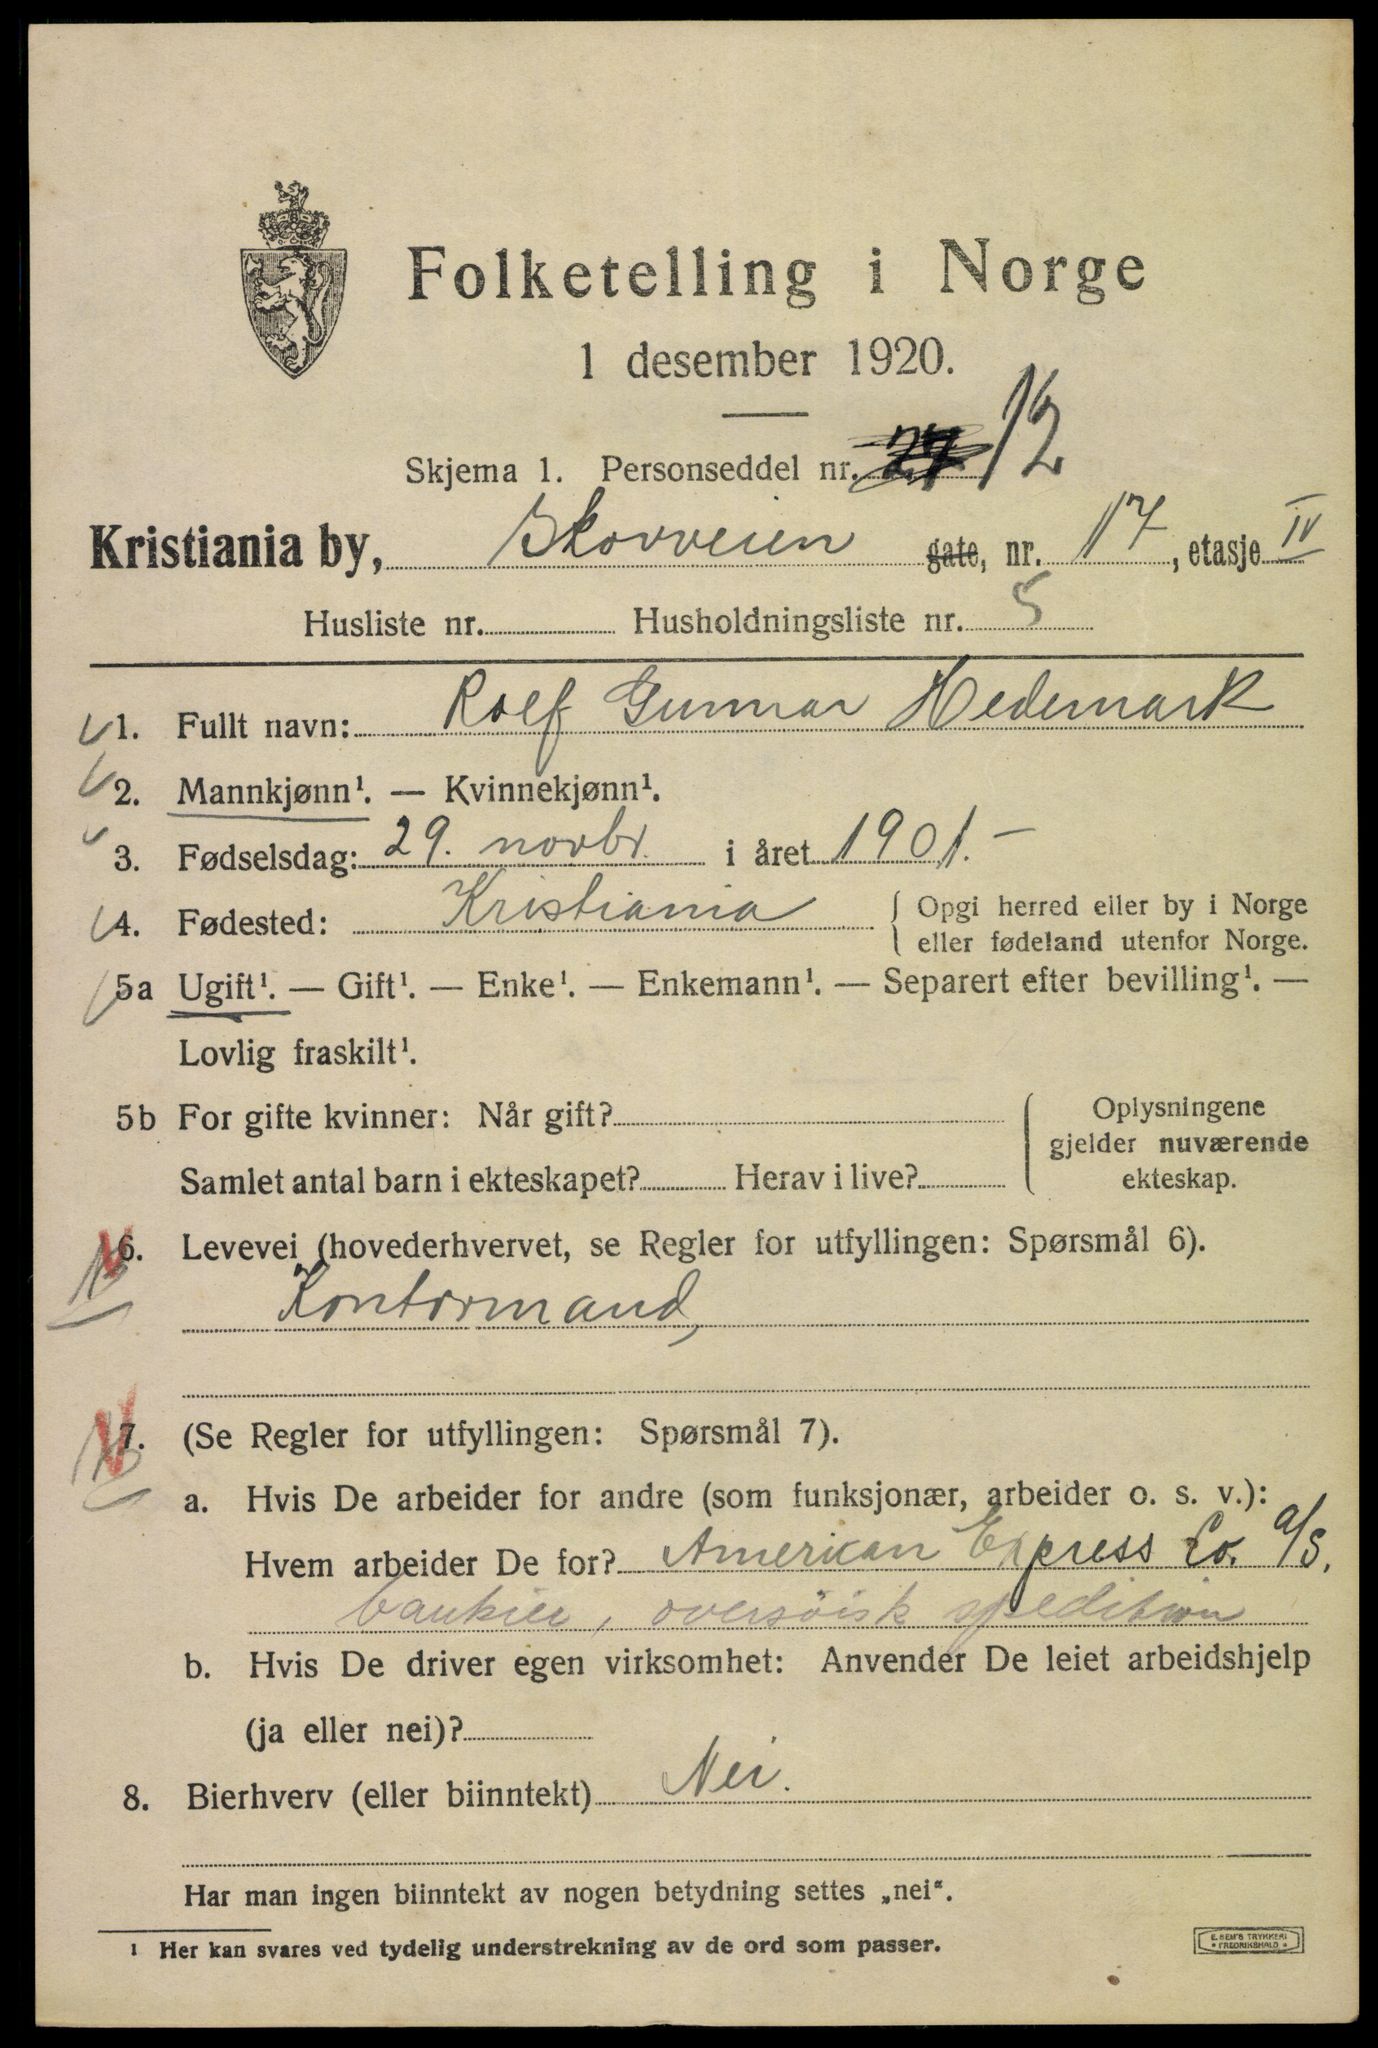 Folketelling i Norge
1 desember 1920.
Skjema 1. Personseddel nr. 27 12
Kristiania by, Skovveien gate, nr. 17, etasje IV
Husliste nr. Husholdningsliste nr. 5
1. Fullt navn: Rolf Gunnar Hedemark
2. Mannkjønn¹. — Kvinnekjønn¹.
3. Fødselsdag: 29. novbr. i året 1901.–
4. Fødested: Kristiania { Opgi herred eller by i Norge
eller fødeland utenfor Norge.
5a Ugift¹. — Gift¹. — Enke¹. — Enkemann¹. — Separert efter bevilling¹. —
Lovlig fraskilt¹.
5b For gifte kvinner: Når gift? { Oplysningene
gjelder nuværende
Samlet antal barn i ekteskapet? Herav i live? ekteskap.
6. Levevei (hovederhvervet, se Regler for utfyllingen: Spørsmål 6).
Kontormand,
7. (Se Regler for utfyllingen: Spørsmål 7).
a. Hvis De arbeider for andre (som funksjonær, arbeider o. s. v.):
Hvem arbeider De for? American Express Co. a/s,
bankier, oversöisk spedition
b. Hvis De driver egen virksomhet: Anvender De leiet arbeidshjelp
(ja eller nei)?
8. Bierhverv (eller biinntekt) Nei.
Har man ingen biinntekt av nogen betydning settes „nei“.
¹ Her kan svares ved tydelig understrekning av de ord som passer.
E. SEM'S TRYKKERI
FREDRIKSHALD